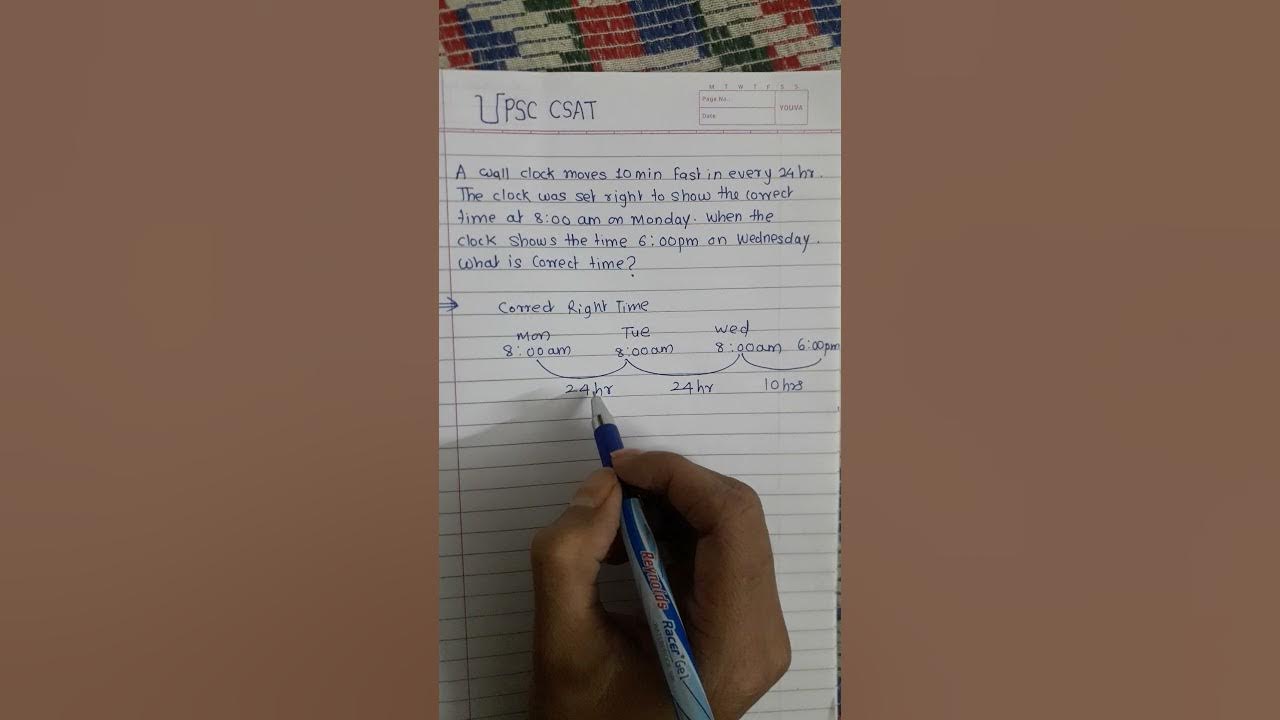 M T W T F S S
Page No.:
YOUVA
Date:
UPSC CSAT
A wall clock moves 10 min fast in every 24 hr.
The clock was set right to show the correct
time at 8:00 am on Monday. When the
clock shows the time 6:00pm on Wednesday.
What is correct time?
⇒ Correct Right Time
Mon Tue Wed
8:00am 8:00am 8:00am 6:00pm
24hr 24hr 10hrs
Reynolds Racer Gel